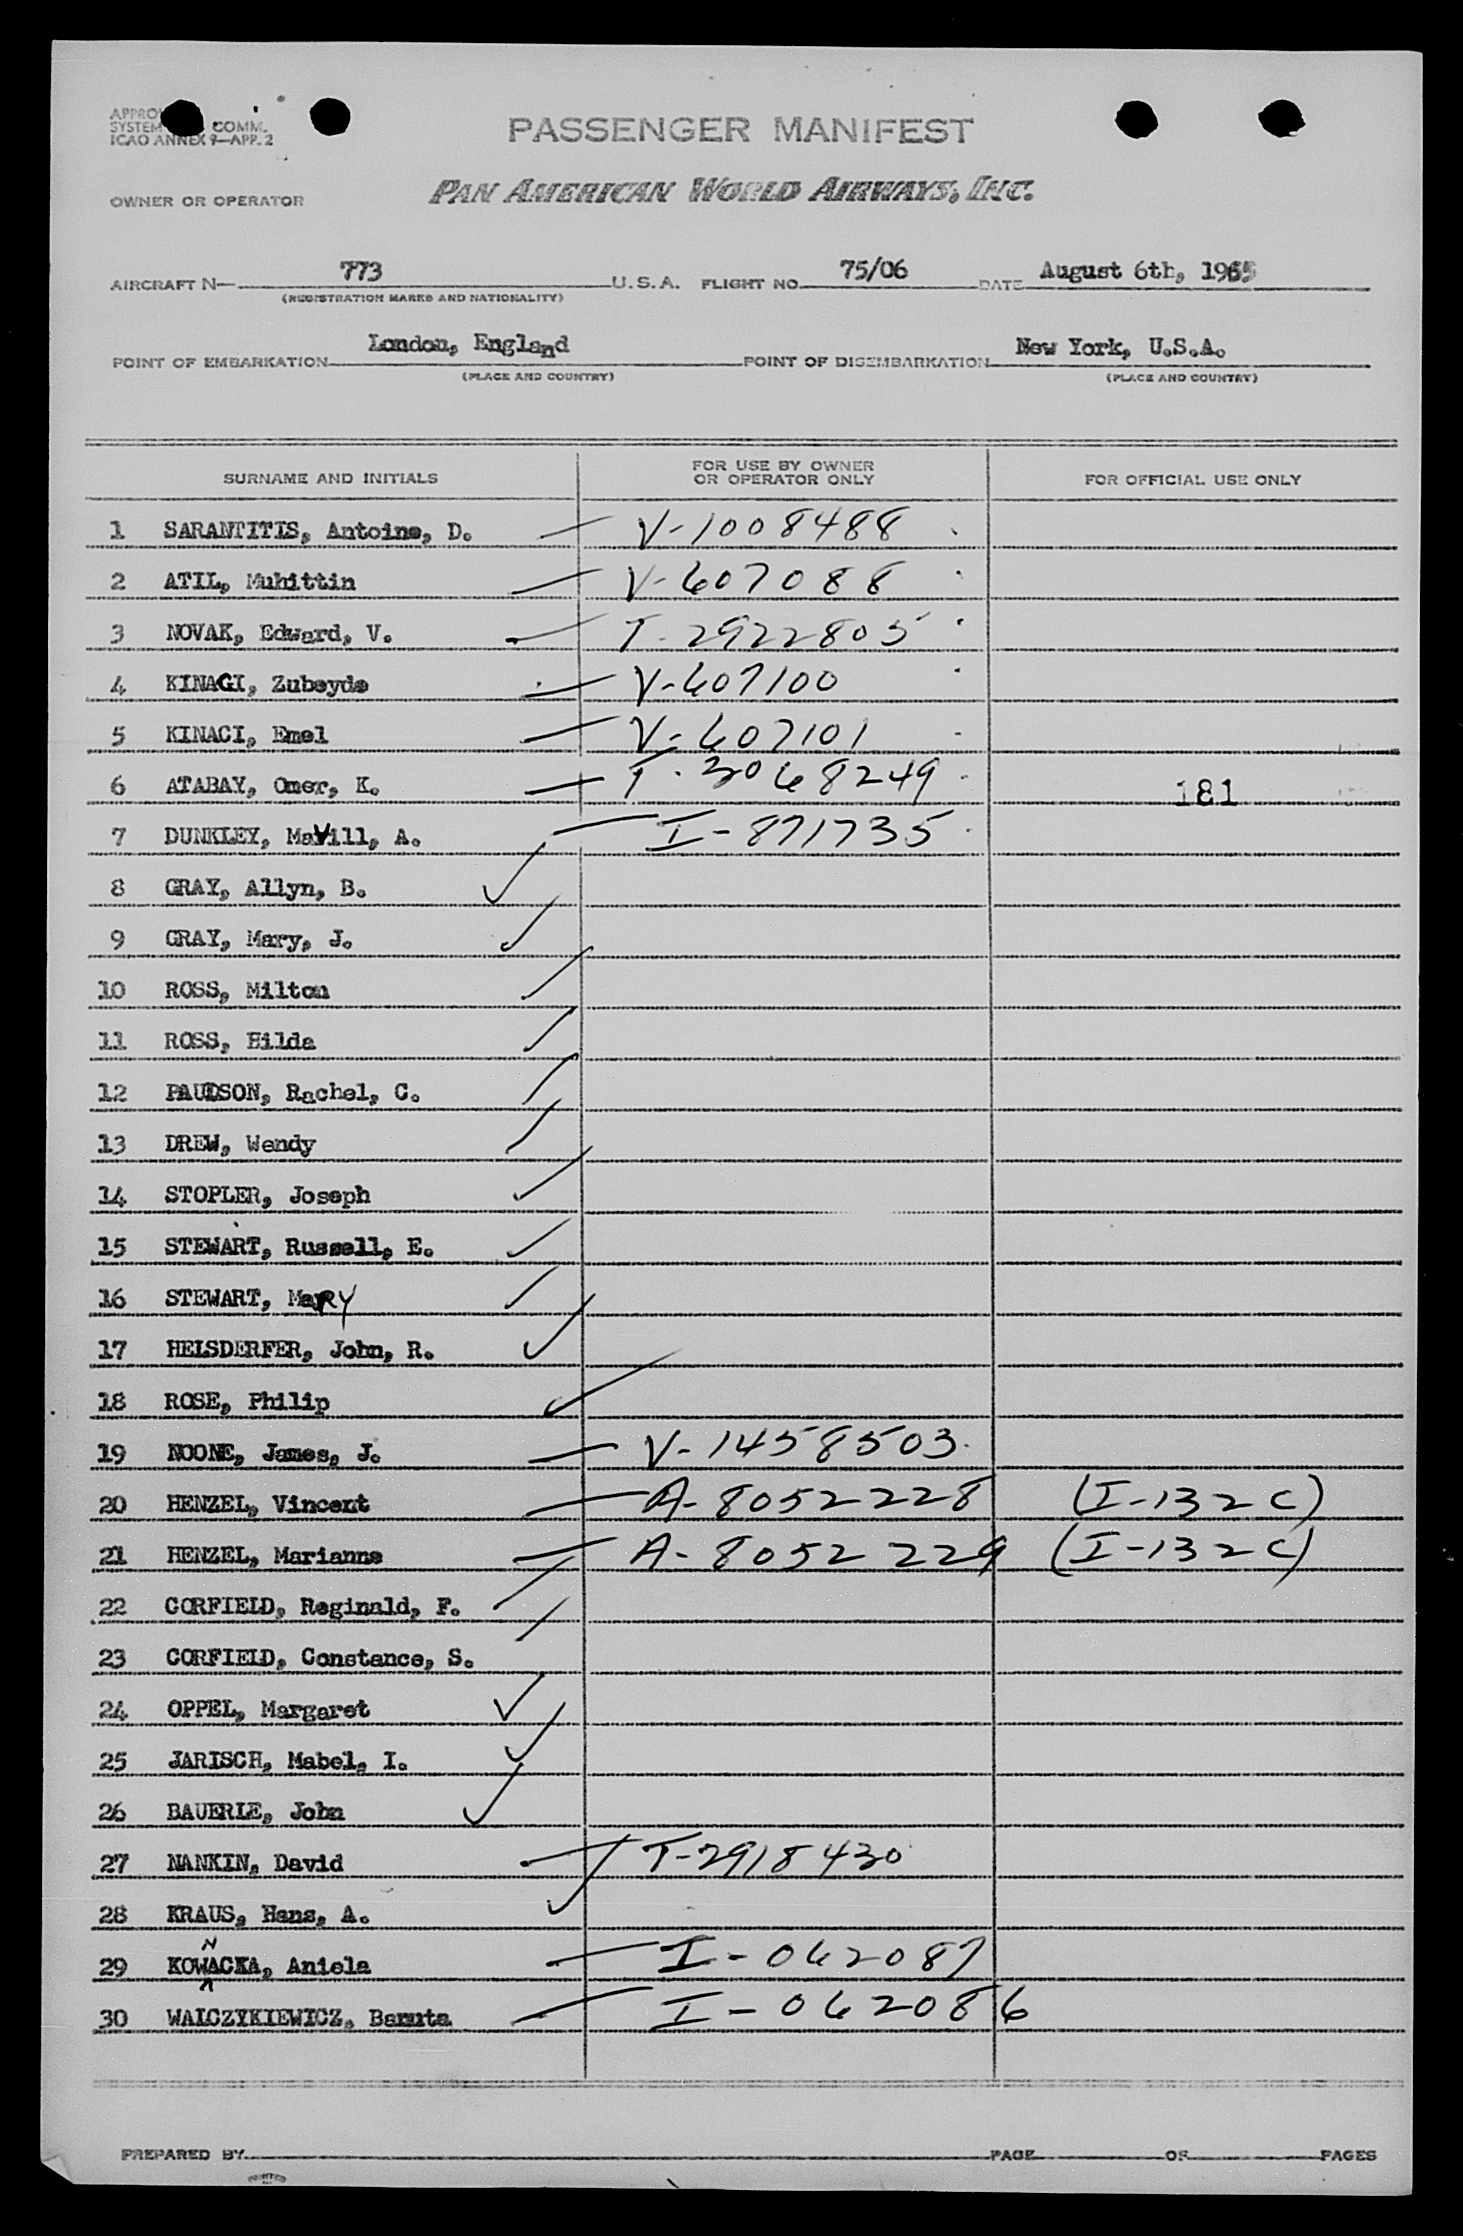 SYSTEM COMM.
ICAO ANNEX 9—APP. 2
PASSENGER MANIFEST
OWNER OR OPERATOR PAN AMERICAN WORLD AIRWAYS, INC.
AIRCRAFT N— 773 U.S.A. FLIGHT NO. 75/06 DATE August 6th, 1965
(REGISTRATION MARKS AND NATIONALITY)
POINT OF EMBARKATION London, England POINT OF DISEMBARKATION New York, U.S.A.
(PLACE AND COUNTRY) (PLACE AND COUNTRY)
SURNAME AND INITIALS FOR USE BY OWNER OR OPERATOR ONLY FOR OFFICIAL USE ONLY
1 SARANTITIS, Antoine, D. V-1008488
2 ATIL, Muhittin V-607088
3 NOVAK, Edward, V. T-2922805
4 KINAGI, Zubeyde V-607100
5 KINACI, Emel V-607101
6 ATABAY, Omer, K. T-3068249 181
7 DUNKLEY, MaVill, A. I-871735
8 GRAY, Allyn, B.
9 GRAY, Mary, J.
10 ROSS, Milton
11 ROSS, Hilda
12 PAUDSON, Rachel, C.
13 DREW, Wendy
14 STOPLER, Joseph
15 STEWART, Russell, E.
16 STEWART, MaRY
17 HEISDERFER, John, R.
18 ROSE, Philip
19 NOONE, James, J. V-1458503
20 HENZEL, Vincent A-8052228 (I-132C)
21 HENZEL, Marianne A-8052229 (I-132C)
22 CORFIELD, Reginald, F.
23 CORFIELD, Constance, S.
24 OPPEL, Margaret
25 JARISCH, Mabel, I.
26 BAUERLE, John
27 NANKIN, David T-2918430
28 KRAUS, Hans, A.
N
29 KOWACKA, Aniela I-062087
30 WALCZYKIEWICZ, Banuta I-062086
PREPARED BY PAGE OF PAGES
PRINTED